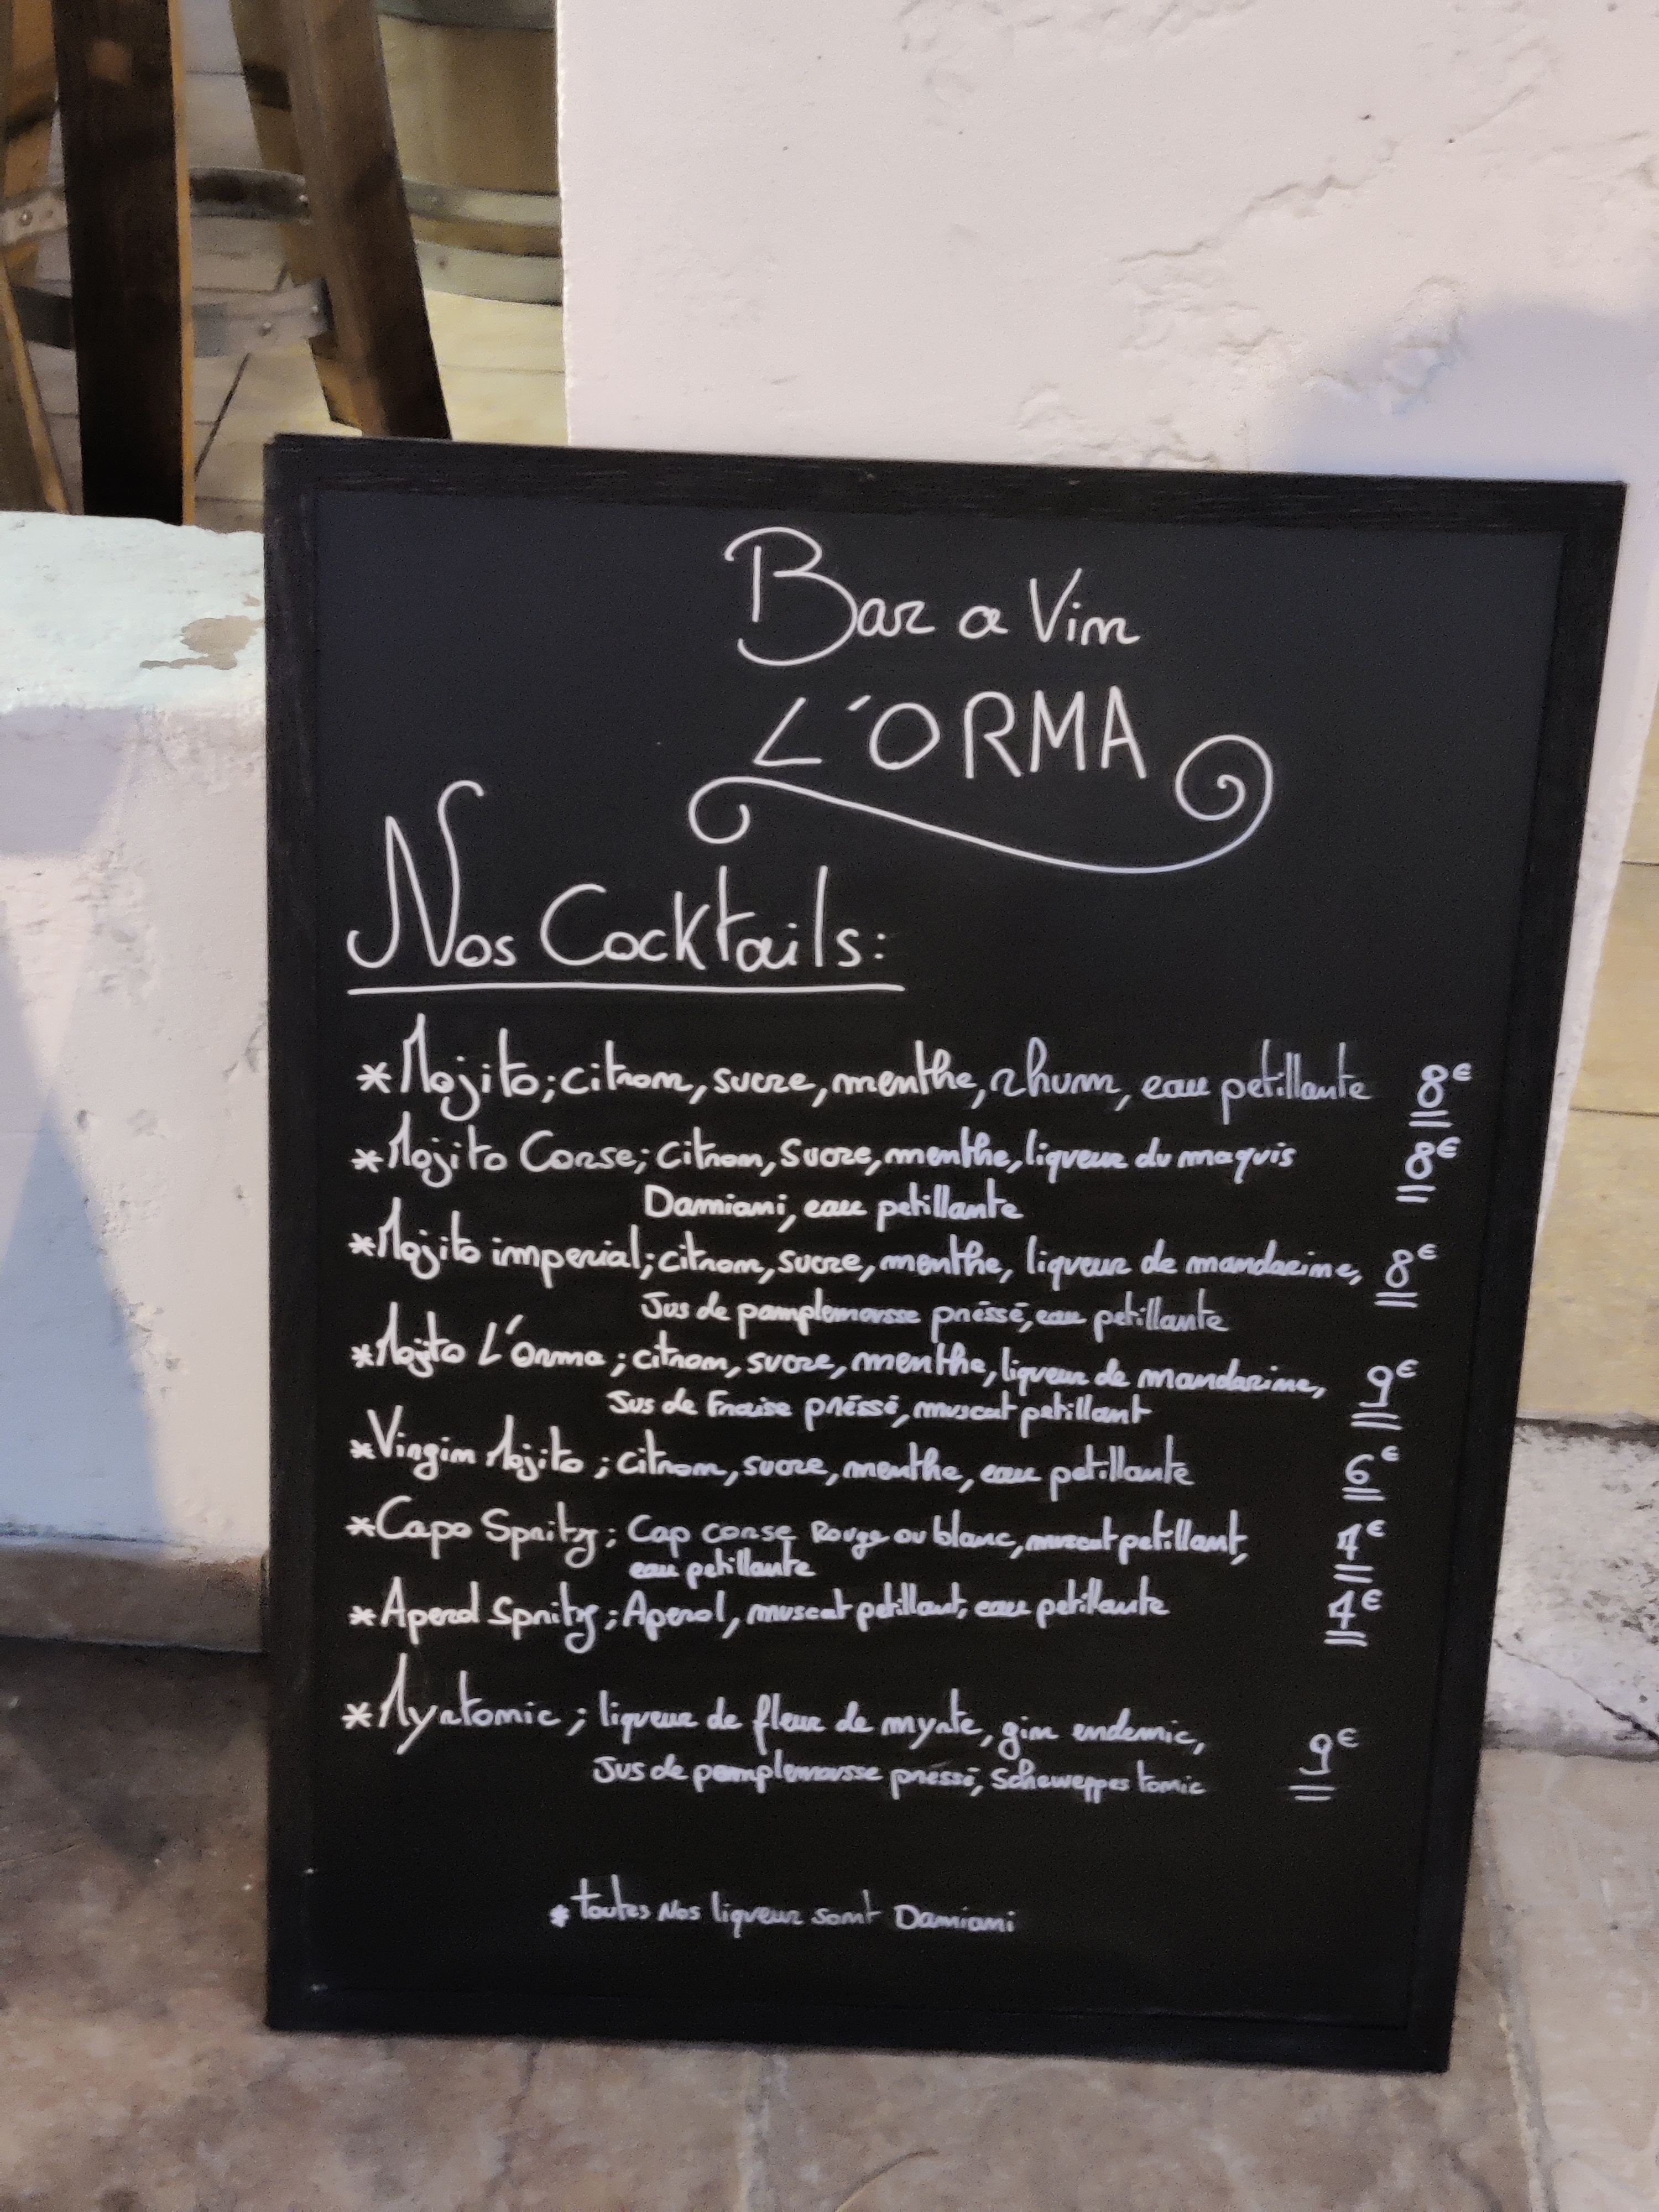 Bar a Vin
L'ORMA
Nos Cocktails:
*Mojito; citron, sucre, menthe, rhum, eau petillante 8€
*Mojito Corse; citron, sucre, menthe, liqueur du maquis 8€
Damiani, eau petillante
*Mojito imperial; citron, sucre, menthe, liqueur de mandarine, 8€
Jus de pamplemousse préssé, eau petillante
*Mojito L'Orma; citron, sucre, menthe, liqueur de mandarine, 9€
Jus de Fraise préssé, muscat petillant
*Virgin Mojito; citron, sucre, menthe, eau petillante 6€
*Capo Spritz; Cap corse Rouge ou blanc, muscat petillant, 4€
eau petillante
*Aperol Spritz; Aperol, muscat petillant, eau petillante 4€
*Myrtonic; liqueur de fleur de myrte, gin endemic, 9€
Jus de pamplemousse préssé, Scheweppes tonic
*toutes Nos liqueur sont Damiani